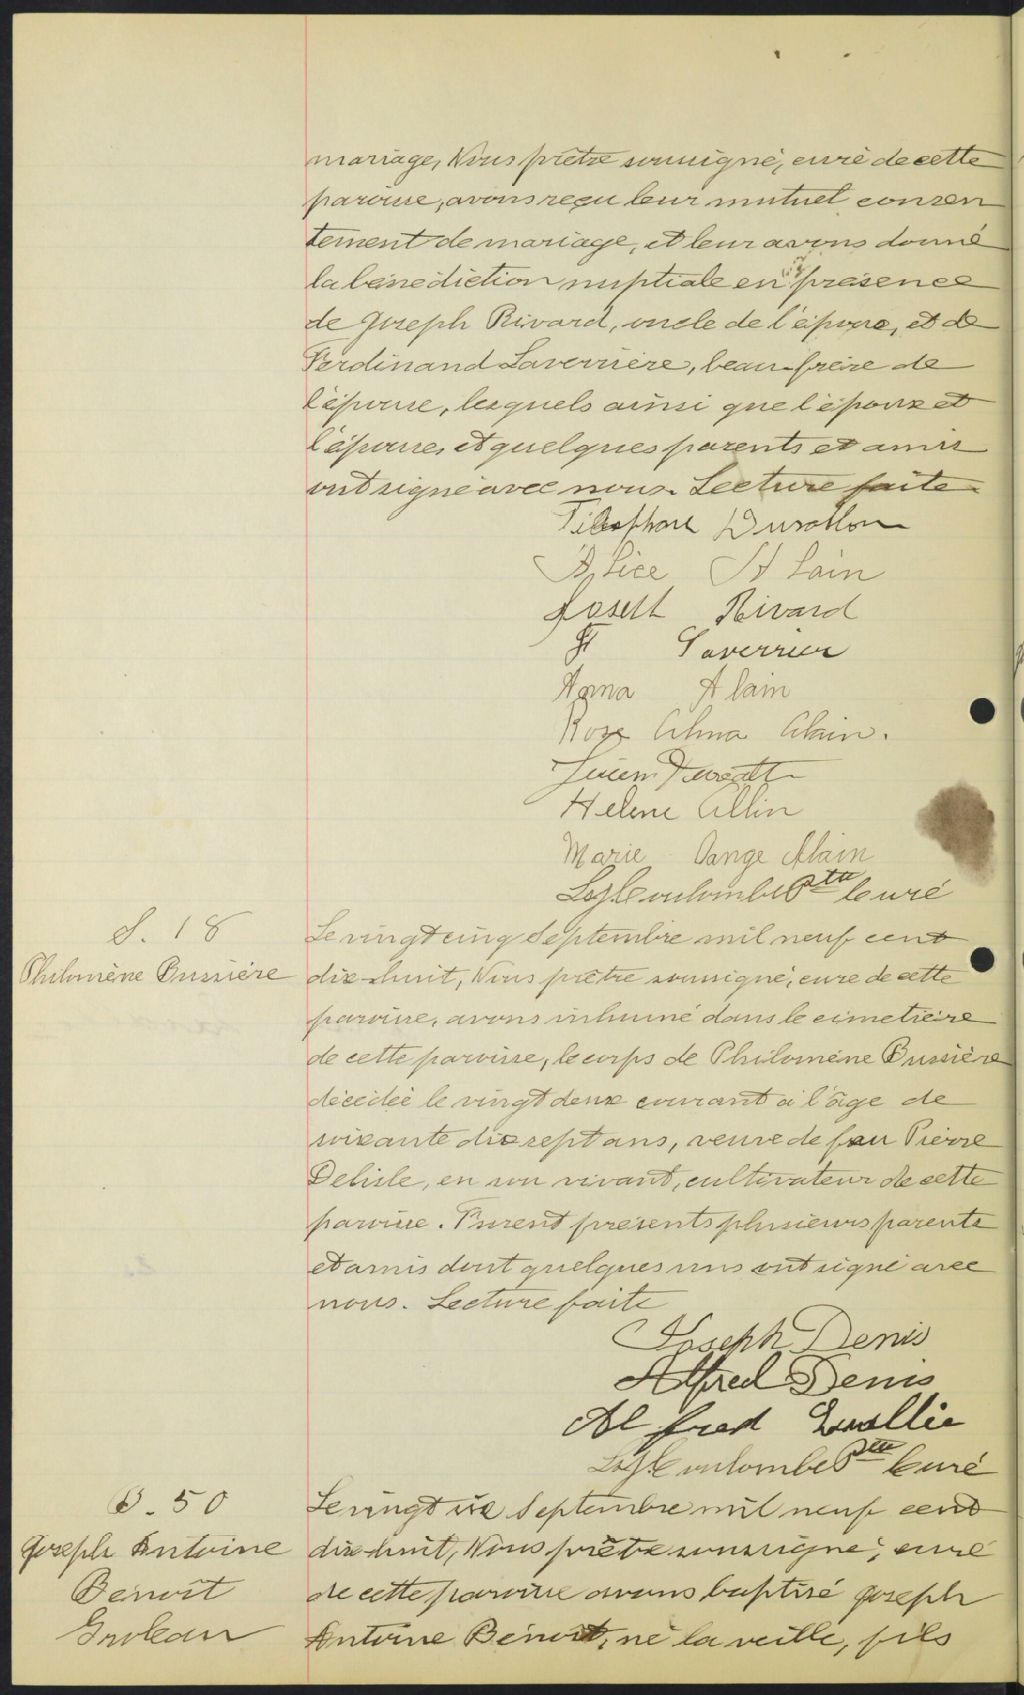 mariage, Nous prêtre soussigné, curé de cette
paroisse, avons reçu leur mutuel consen
tement de mariage, et leur avons donné
la bénédiction nuptiale en présence
de Joseph Rivard, oncle de l'épouse, et de
Ferdinand Laverrière, beau-frère de
l'épouse, lesquels ainsi que l'époux et
l'épouse, et quelques parents et amis
ont signé avec nous. Lecture faite
Alice Alain
Joseph Rivard
F Laverrier
Anna Alain
Rose Alma Alain.
Helene Allin
Marie Dange Alain
Coulombe Ptre Curé
S. 18
Philomène Bussière
Le vingt cinq Septembre mil neuf cent
dix-huit, Nous prêtre soussigné, curé de cette
paroisse, avons inhumé dans le cimetière
de cette paroisse, le corps de Philomène Bussière
décédée le vingt deux courant à l'âge de
soixante dix sept ans, veuve de feu Pierre
Delisle, en son vivant, cultivateur de cette
paroisse. Furent présents plusieurs parents
et amis dont quelques uns ont signé avec
nous. Lecture faite
Joseph Denis
Alfred Denis
Alfred
Coulombe Ptre Curé
B. 50
Joseph Antoine
Benoît
Groleau
Le vingt six Septembre mil neuf cent
dix-huit, Nous prêtre soussigné, curé
de cette paroisse avons baptisé Joseph
Antoine Benoit, né la veille, fils